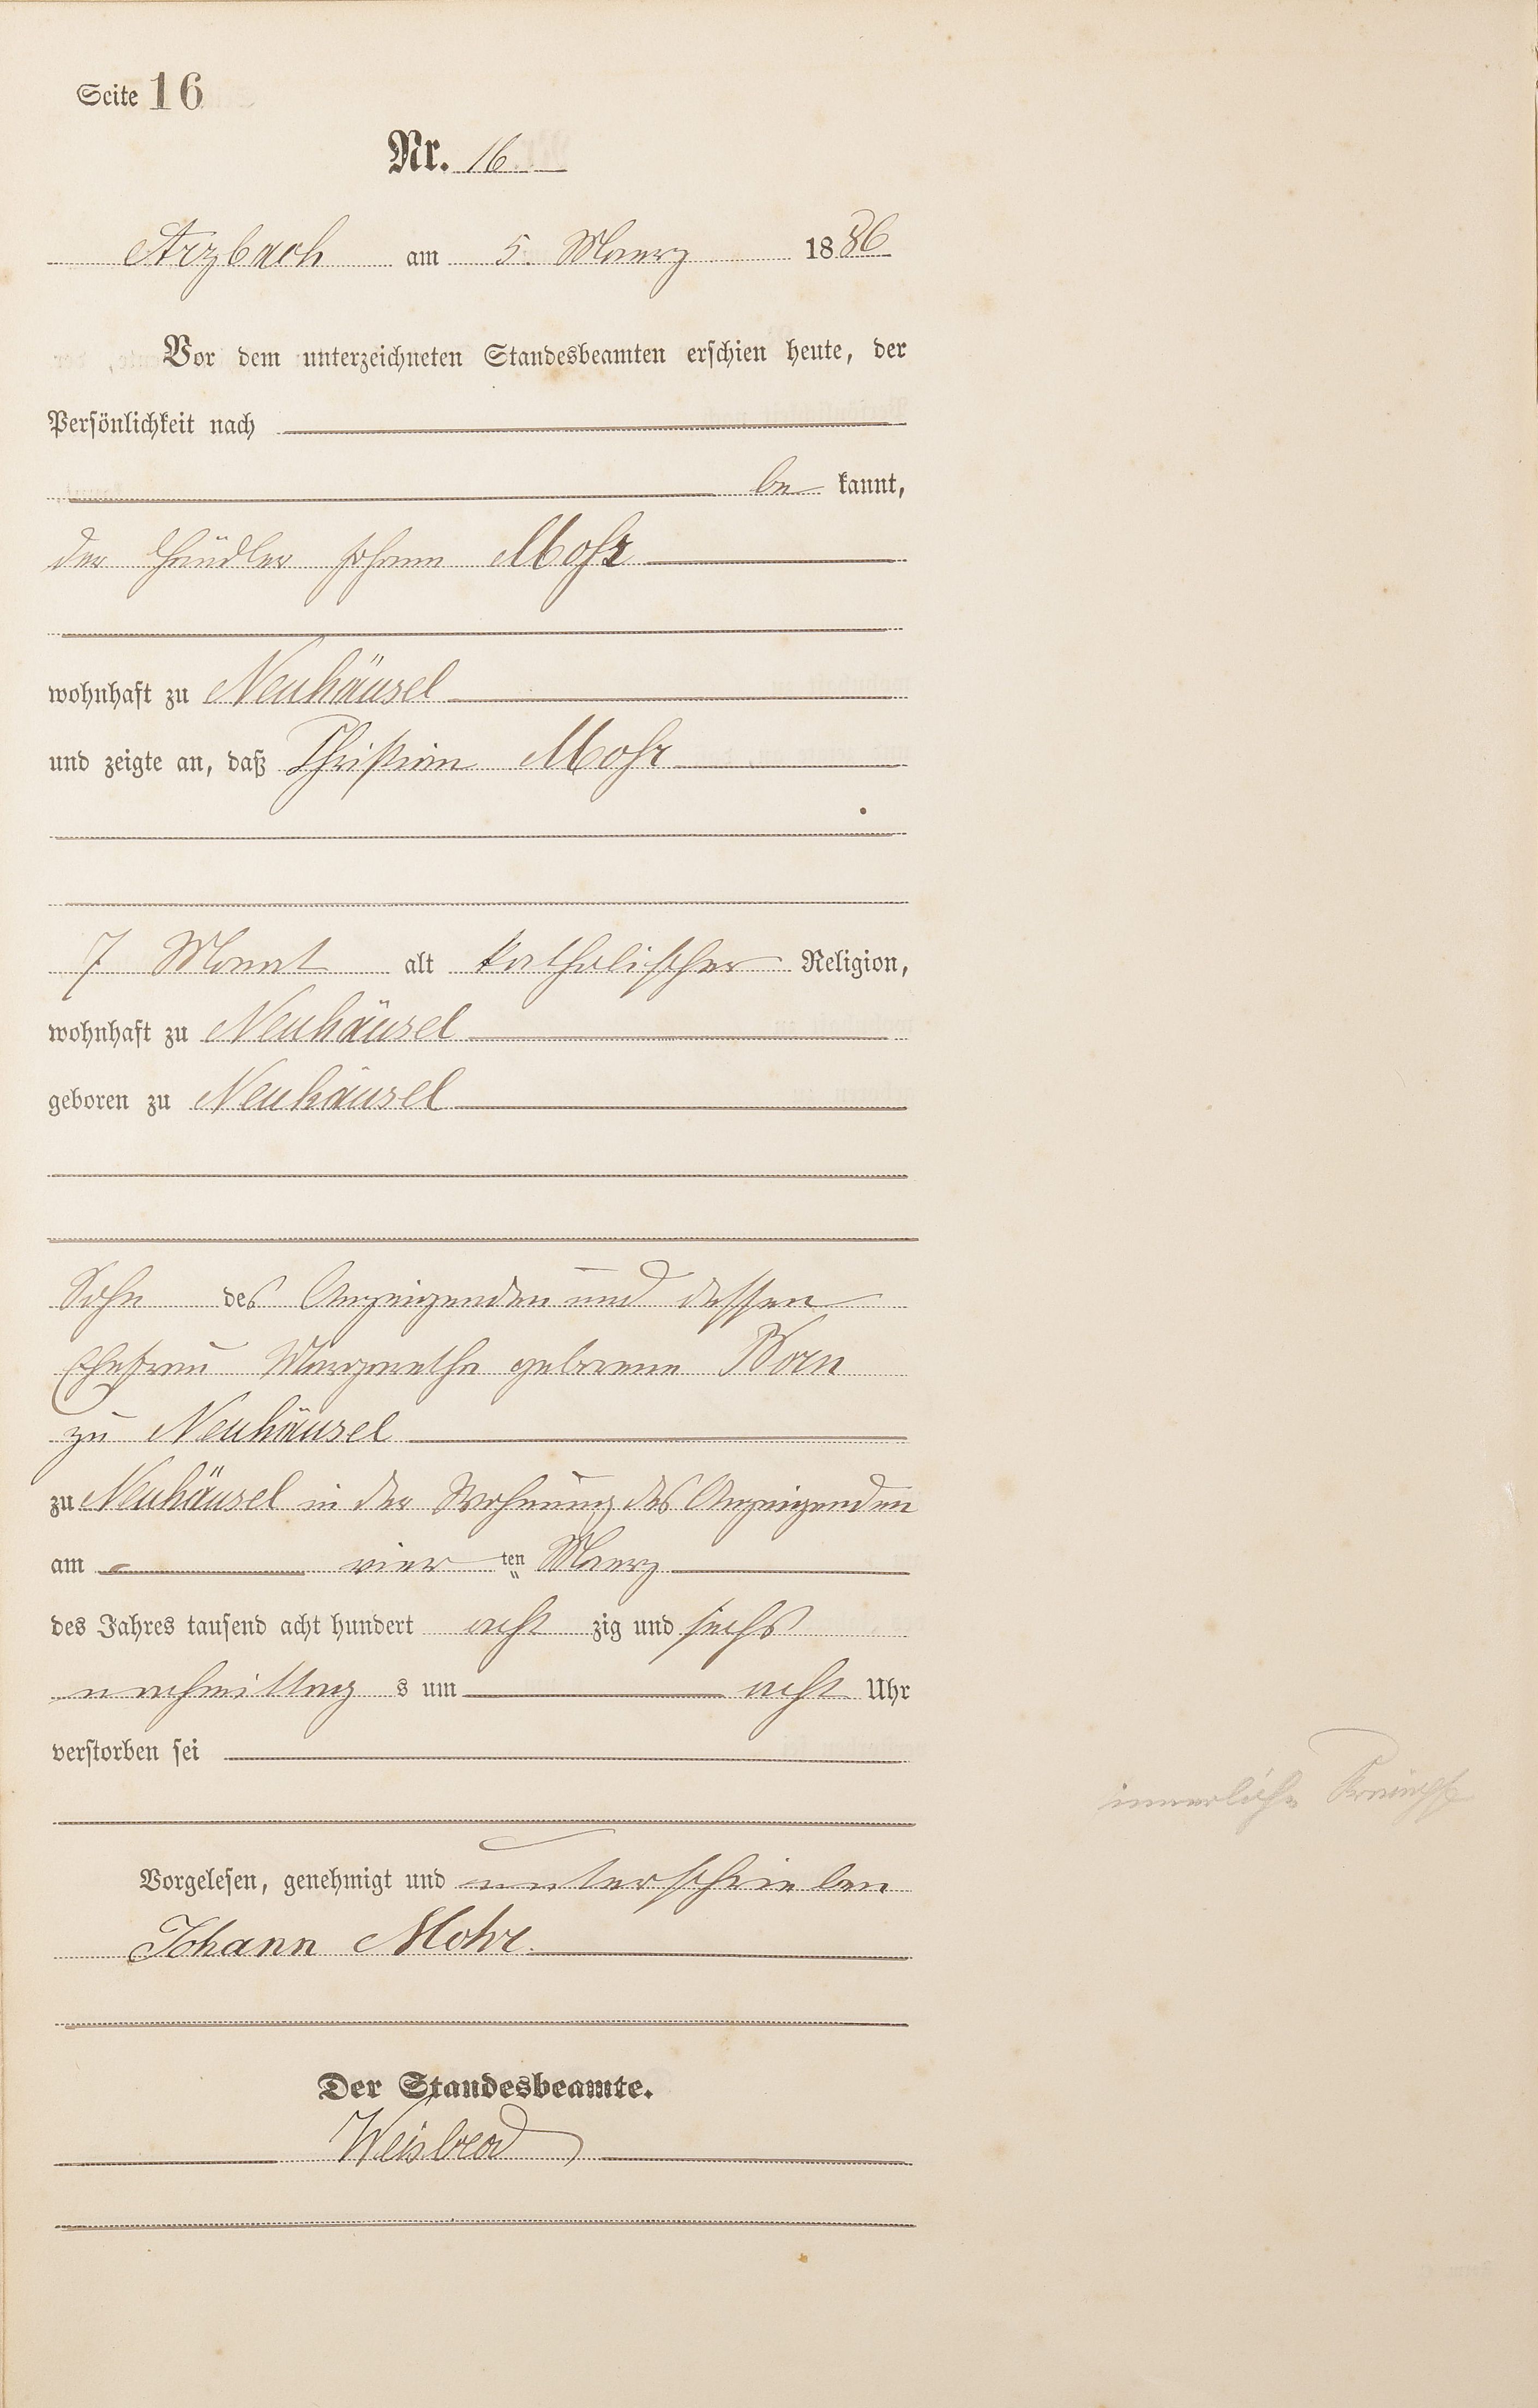 Seite 16
Nr. 16
Arzbach am 5. Maerz 1886
Vor dem unterzeichneten Standesbeamten erschien heute, der
Persönlichkeit nach
be kannt,
der Händler Johann Mohr
wohnhaft zu Neuhäusel
und zeigte an, daß Christian Mohr
7 Monat alt katholischer Religion,
wohnhaft zu Neuhäusel
geboren zu Neuhäusel
Sohn des Anzeigenden und dessen
Ehefrau Margarethe geborene Born
zu Neuhäusel
zu Neuhäusel in der Wohnung des Anzeigenden
am vier ten Maerz
des Jahres tausend acht hundert acht zig und sechs
nachmittag s um acht Uhr
verstorben sei
innerliche Krämpfe
Vorgelesen, genehmigt und unterschrieben
Johann Mohr.
Der Standesbeamte.
Weisbrod